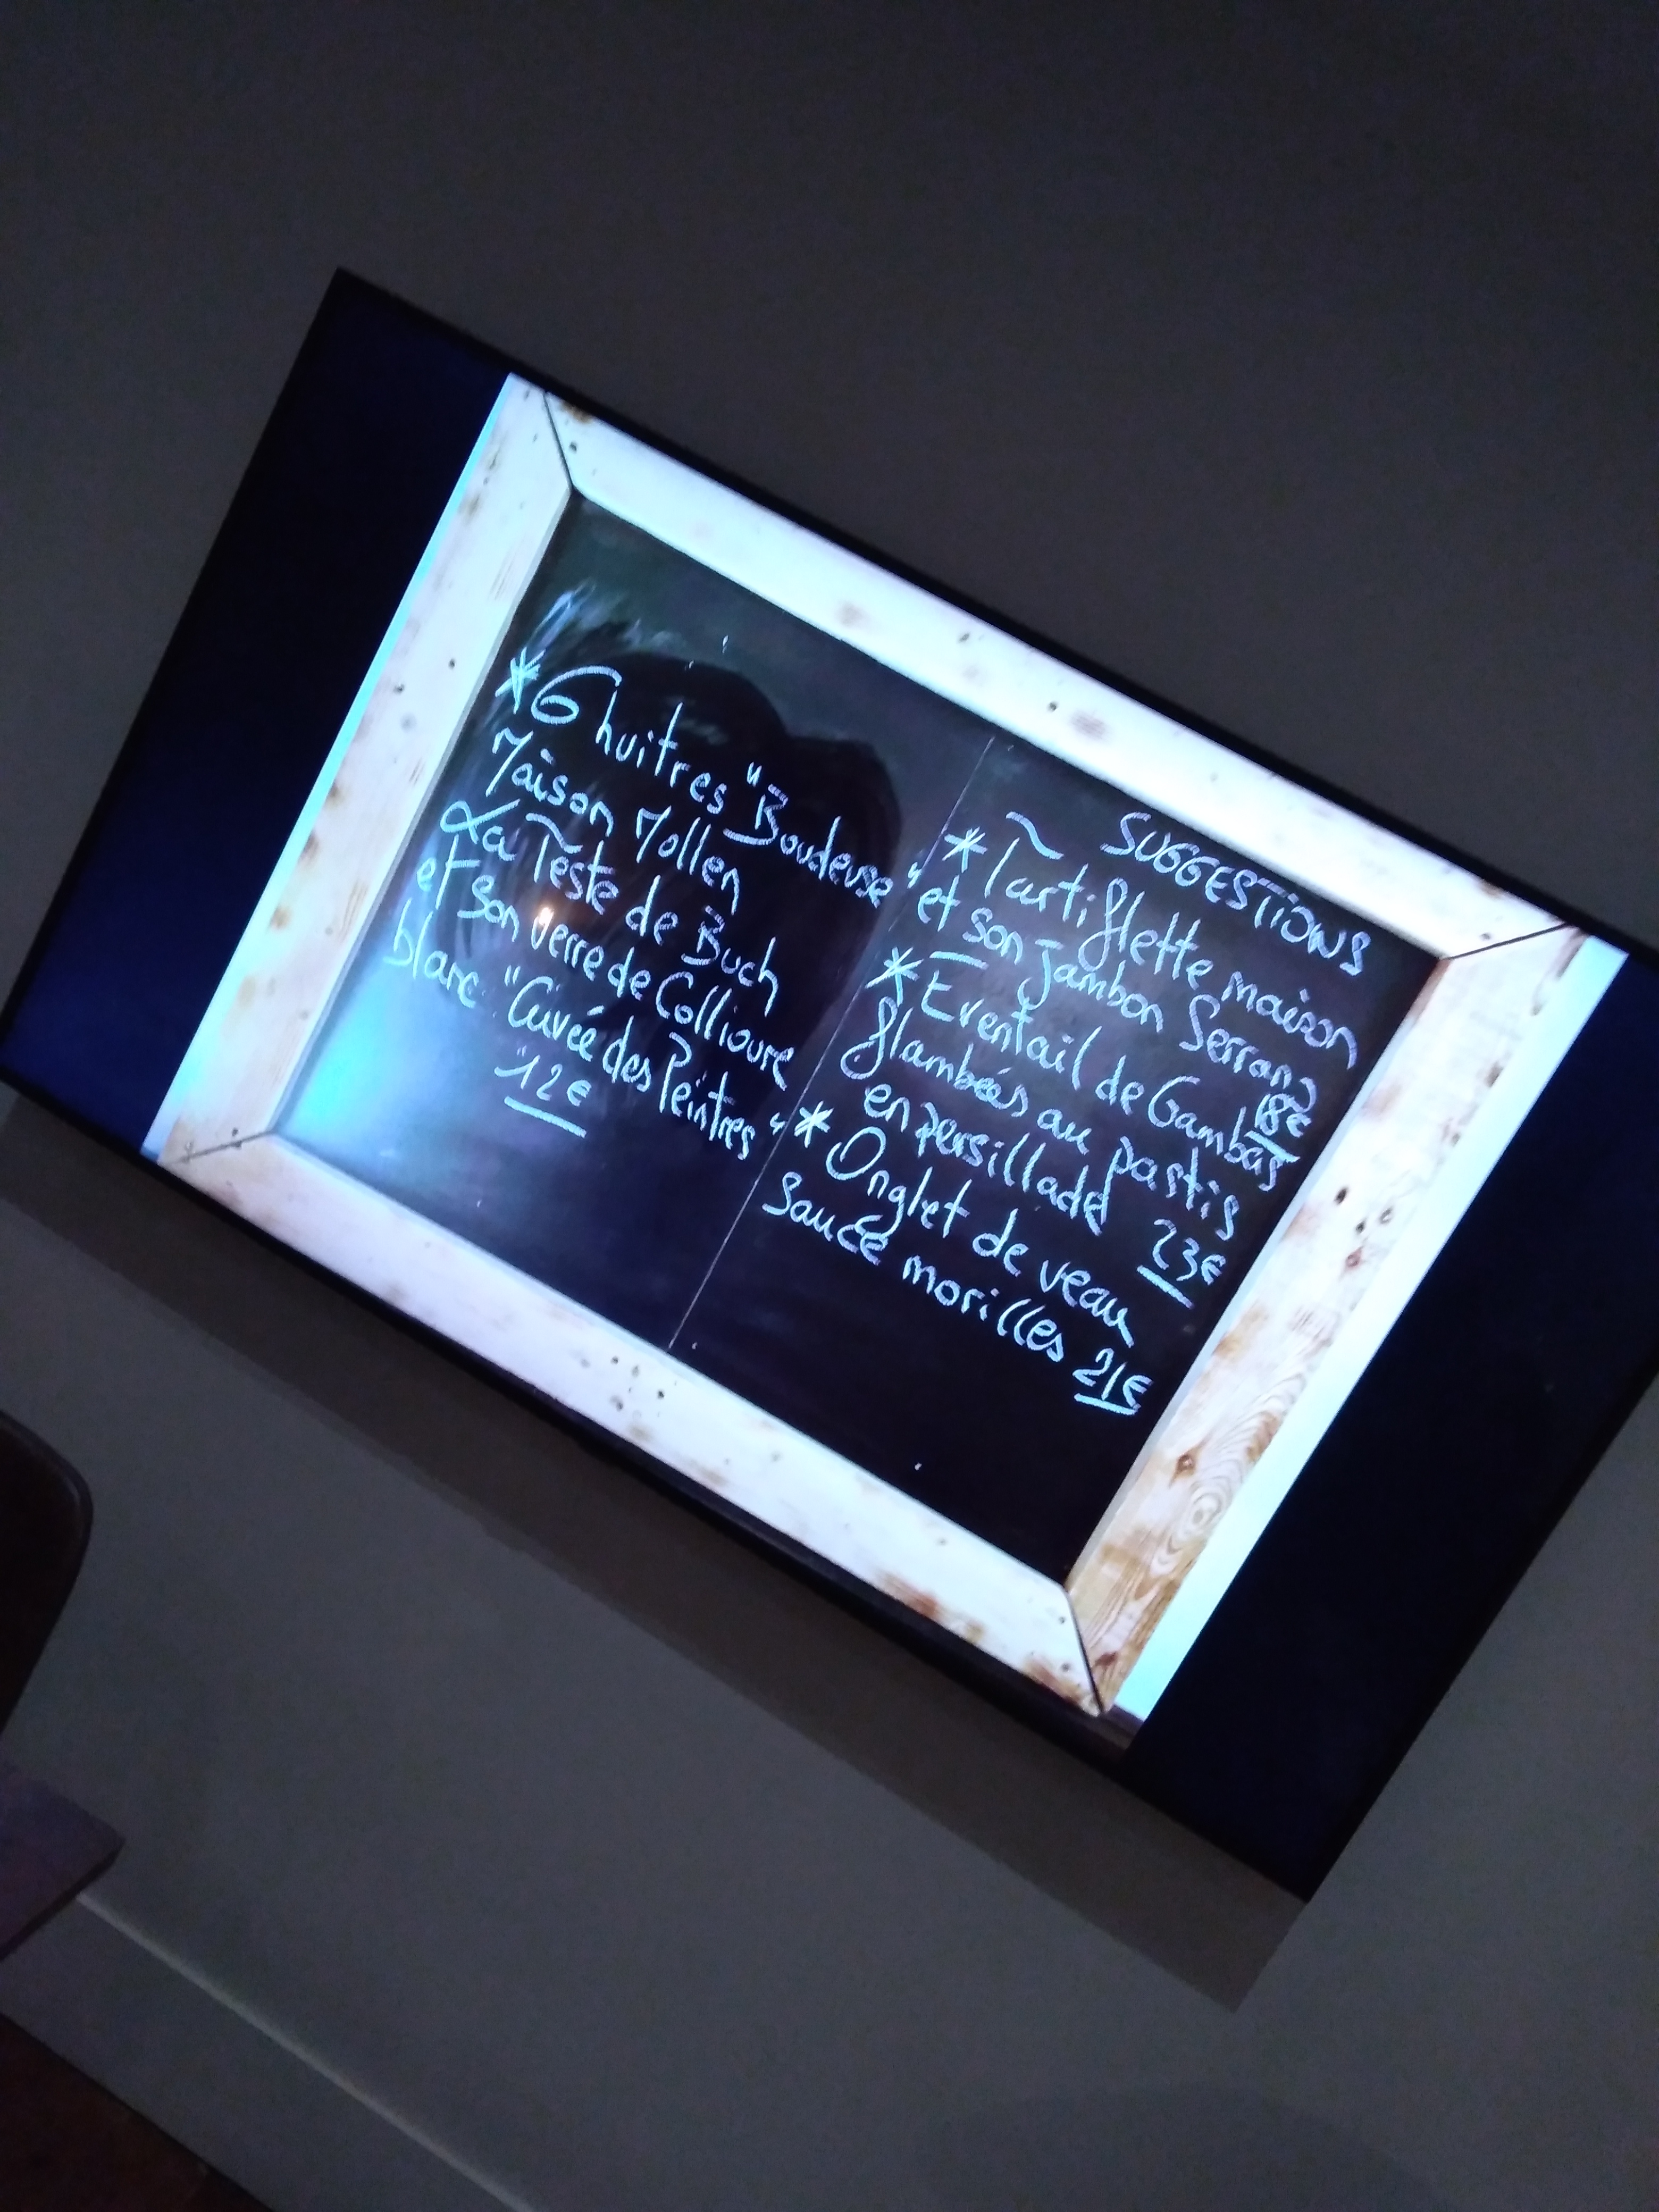 * 6 huitres "Boudeuse"
Maison Mollen
La Teste de Buch
et son verre de Collioure
blanc "Cuvée des Peintres"
12€
SUGGESTIONS
* Tartiflette maison
et son jambon Serrano
18€
* Eventail de Gambas
flambées au pastis
en persillade 23€
* Onglet de veau
sauce morilles 21€